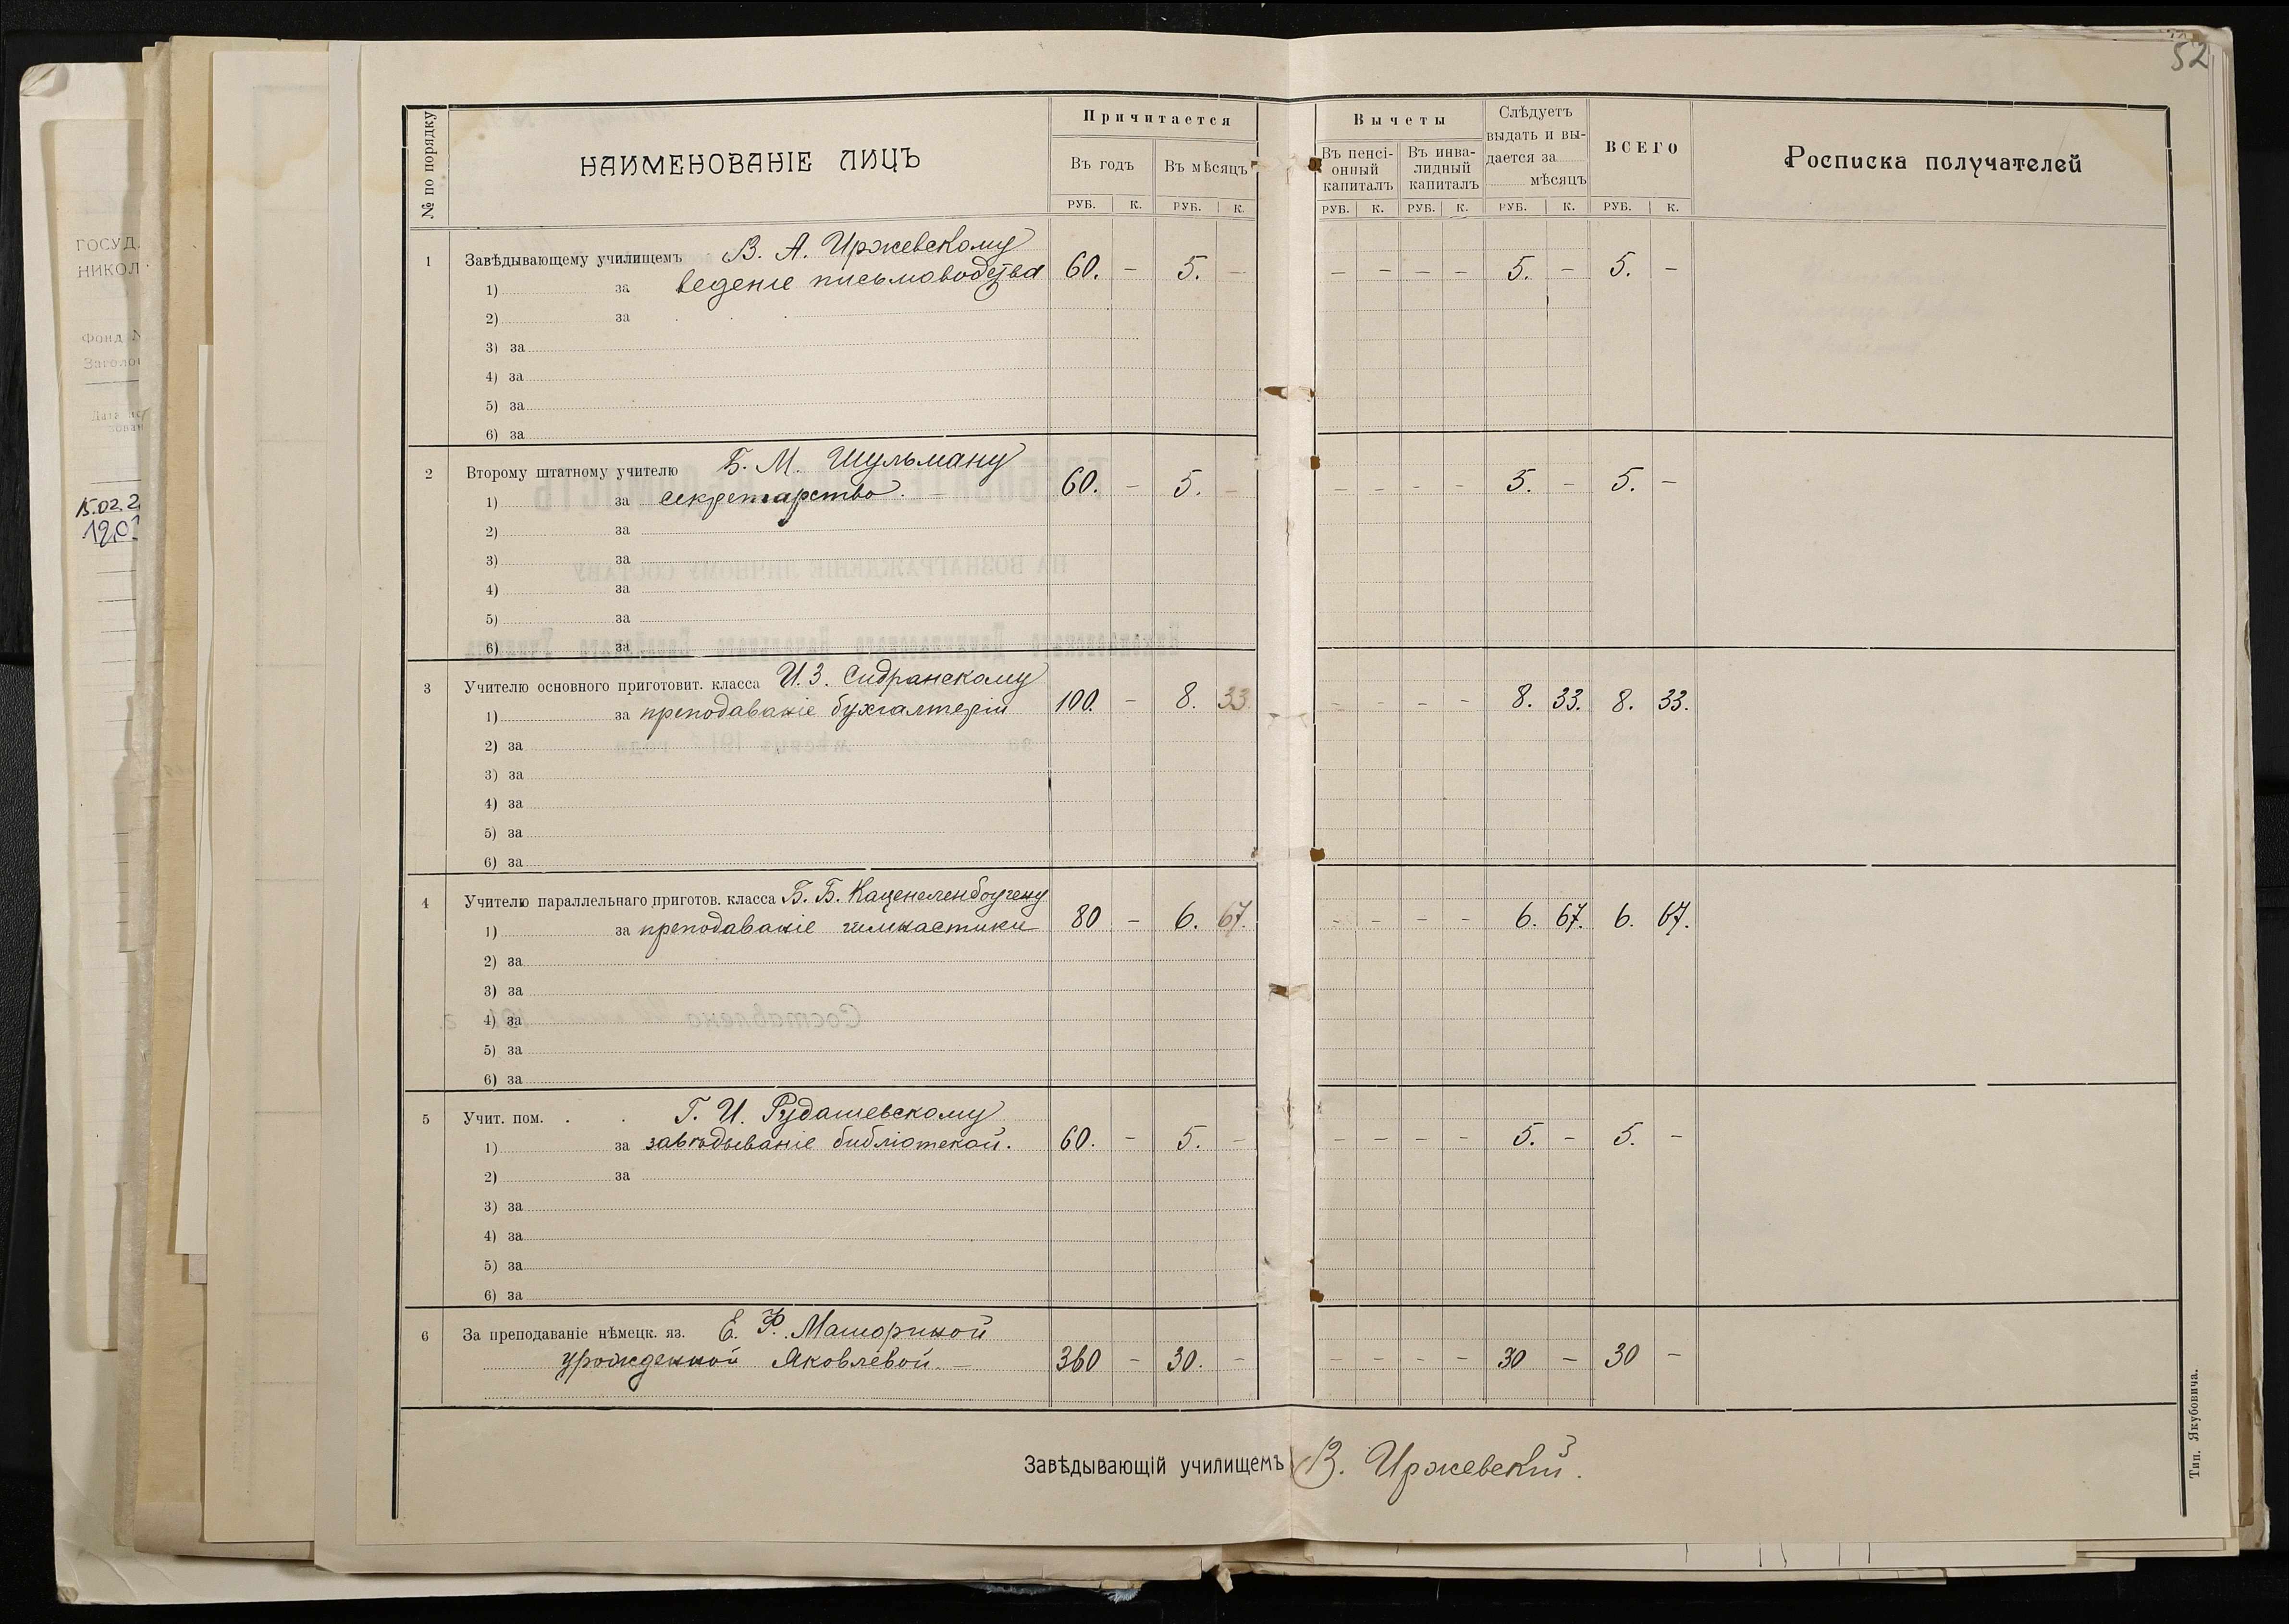 52
№ по порядку
НАИМЕНОВАНІЕ ЛИЦЪ
Причитается
Въ годъ
Въ мѣсяцъ
РУБ. К. РУБ. К.
Вычеты
Въ пенсі-
онный
капиталъ
Въ инва-
лидный
капиталъ
Слѣдуетъ
выдать и вы-
дается за
мѣсяцъ
ВСЕГО
РУБ. К. РУБ. К. РУБ. К. РУБ. К.
Росписка получателей
1 Завѣдывающему училищемъ В. А. Иржевскому
1) за веденіе письмоводства 60. – 5. – – – – – 5. – 5. –
2) за
3) за
4) за
5) за
6) за
2 Второму штатному учителю Б. М. Шульману
1) за секретарство. 60. – 5. – – – – – 5. – 5. –
2) за
3) за
4) за
5) за
6) за
3 Учителю основного приготовит. класса И. З. Сидранскому
1) за преподаваніе бухгалтеріи 100. – 8. 33 – – – – 8. 33. 8. 33.
2) за
3) за
4) за
5) за
6) за
4 Учителю параллельнаго приготов. класса Б. Б. Каценеленбогену
1) за преподаваніе гимнастики 80 – 6. 67. – – – – 6. 67. 6. 67.
2) за
3) за
4) за
5) за
6) за
5 Учит. пом. . . Г. И. Рудашевскому
1) за завѣдываніе библіотекой. 60. – 5. – – – – – 5. – 5. –
2) за
3) за
4) за
5) за
6) за
6 За преподаваніе нѣмецк. яз. Е. Ф. Машориной
урожденной Яковлевой. – 360 – 30. – – – – – 30 – 30 –
Завѣдывающій училищемъ В. Иржевскій.
Тип. Якубовича.
ГОСУД.
НИКОЛ
Фонд
15.02.2